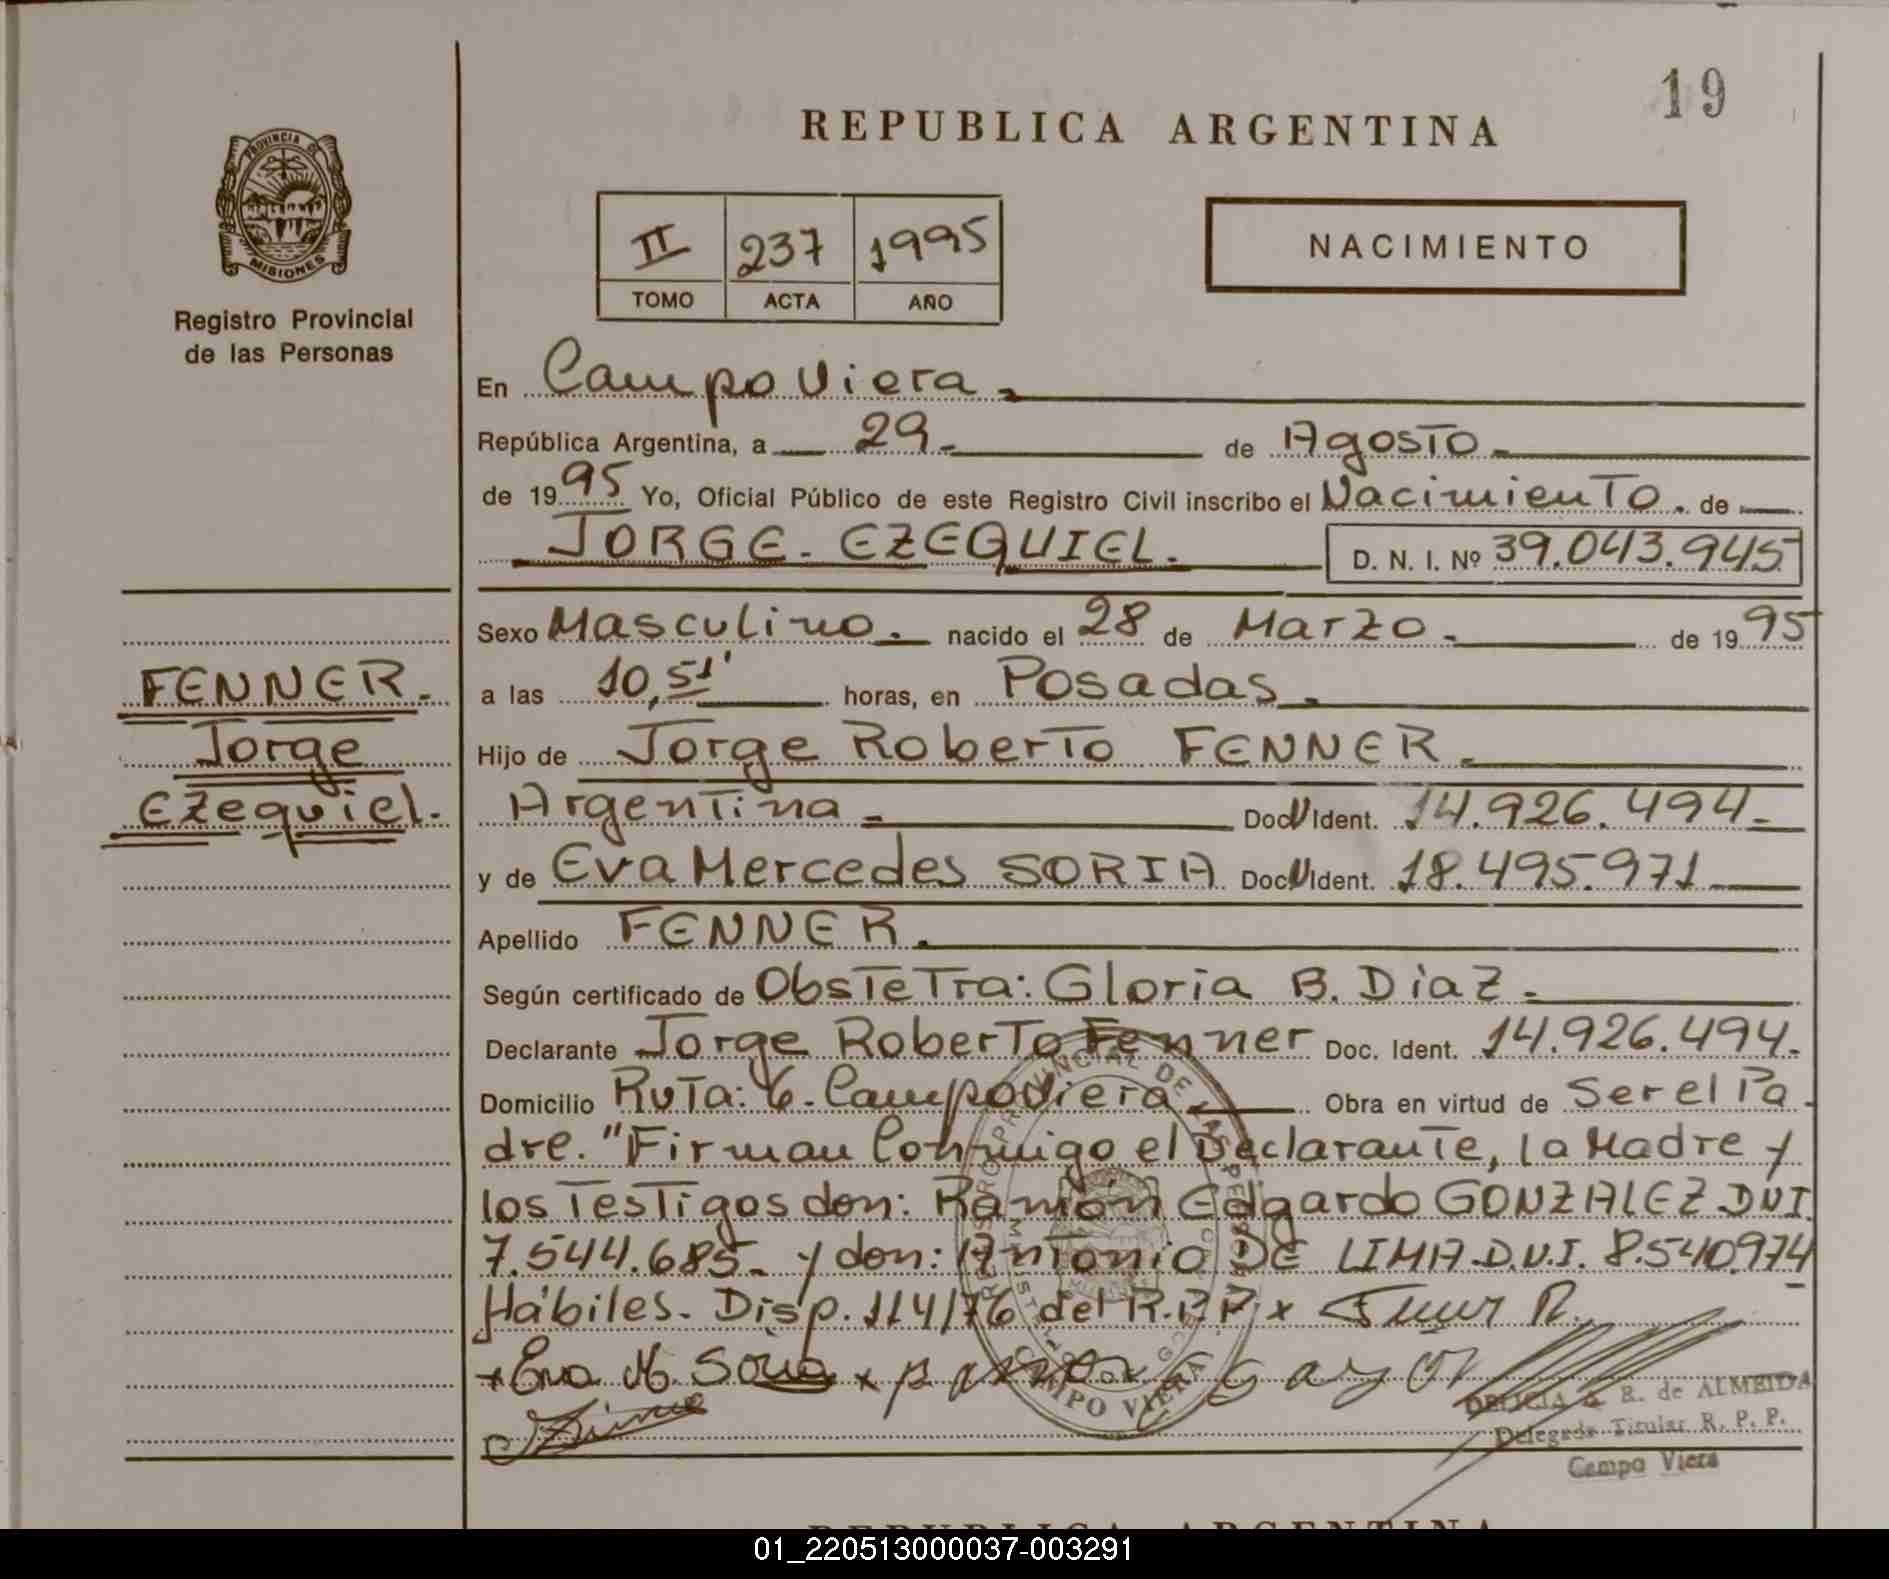 19
REPUBLICA ARGENTINA
PROVINCIA DE
MISIONES
Registro Provincial
de las Personas
II 237 1995
TOMO ACTA AÑO
NACIMIENTO
En Campo Viera.
República Argentina, a 29- de Agosto-
de 1995 Yo, Oficial Público de este Registro Civil inscribo el Nacimiento. de
JORGE-EZEQUIEL. D. N. I. Nº 39.043.945
Sexo Masculino. nacido el 28 de Marzo. de 1995
a las 10,51' horas, en Posadas.
Hijo de Jorge Roberto FENNER.
Argentina. Doc N Ident. 14.926.494-
y de Eva Mercedes SORIA Doc N Ident. 18.495.971
Apellido FENNER.
Según certificado de Obstetra: Gloria B. Diaz.
Declarante Jorge Roberto Fenner Doc. Ident. 14.926.494.
Domicilio Ruta: 6. Campo Viera Obra en virtud de Ser el Pa
dre. "Firman Conmigo el Declarante, la Madre y
los Testigos don: Ramón Edgardo GONZALEZ DNI
7.544.685- y don: Antonio DE LIMA D.N.I. 8.540974
Hábiles. Disp. 114/76 del R.P.P x
x Eva M. Soria x
FENNER.
Jorge
Ezequiel.
CAMPO VIERA
R. de ALMEIDA
Delegada Titular R. P. P.
Campo Viera
REPUBLICA ARGENTINA
01_220513000037-003291